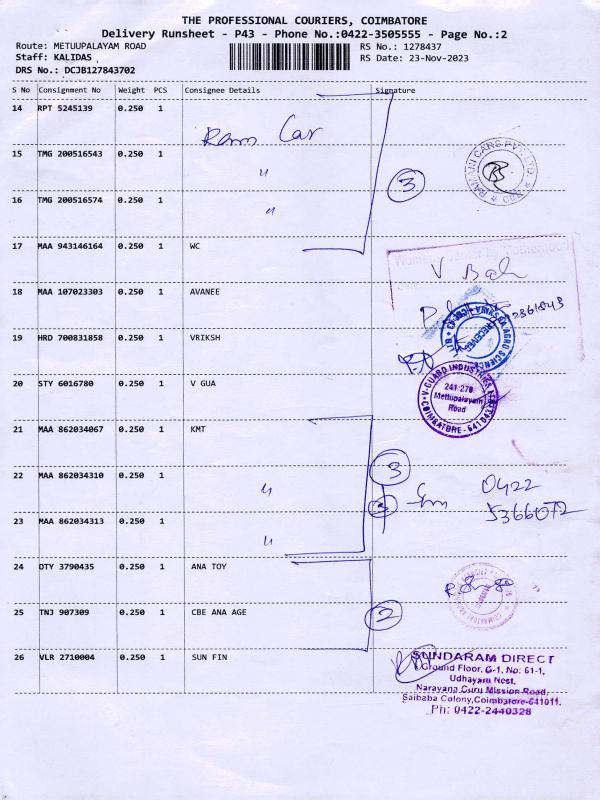 THE PROFESSIONAL COURIERS, COIMBATORE
Delivery Runsheet - P43 - Phone No.:0422-3505555 - Page No.:2
Route: METUUPALAYAM ROAD
Staff: KALIDAS
DRS No.: DCJB127843702
RS No.: 1278437
RS Date: 23-Nov-2023
S No Consignment No Weight PCS Consignee Details Signature
14 RPT 5245139 0.250 1 Ram Car
15 TMG 200516543 0.250 1 "
3
RAMANI CARS PVT LTD
16 TMG 200516574 0.250 1 "
17 MAA 943146164 0.250 1 WC
Women's Center by Motherhood
V Bah
18 MAA 107023303 0.250 1 AVANEE
19 HRD 700831858 0.250 1 VRIKSH
VRIKSHA AGRO SCIENCE
RECEIVED
20 STY 6016780 0.250 1 V GUA
V-GUARD INDUSTRIES
241 270
Mettupalayam
Road
COIMBATORE - 641 043
21 MAA 862034067 0.250 1 KMT
22 MAA 862034310 0.250 1 "
3
0422
5366072
23 MAA 862034313 0.250 1 "
24 DTY 3790435 0.250 1 ANA TOY
25 TNJ 907309 0.250 1 CBE ANA AGE
2
26 VLR 2710004 0.250 1 SUN FIN
SUNDARAM DIRECT
Ground Floor, G-1, No: 61-1,
Udhayam Nest,
Narayana Guru Mission Road,
Saibaba Colony,Coimbatore-641011.
Ph: 0422-2440328